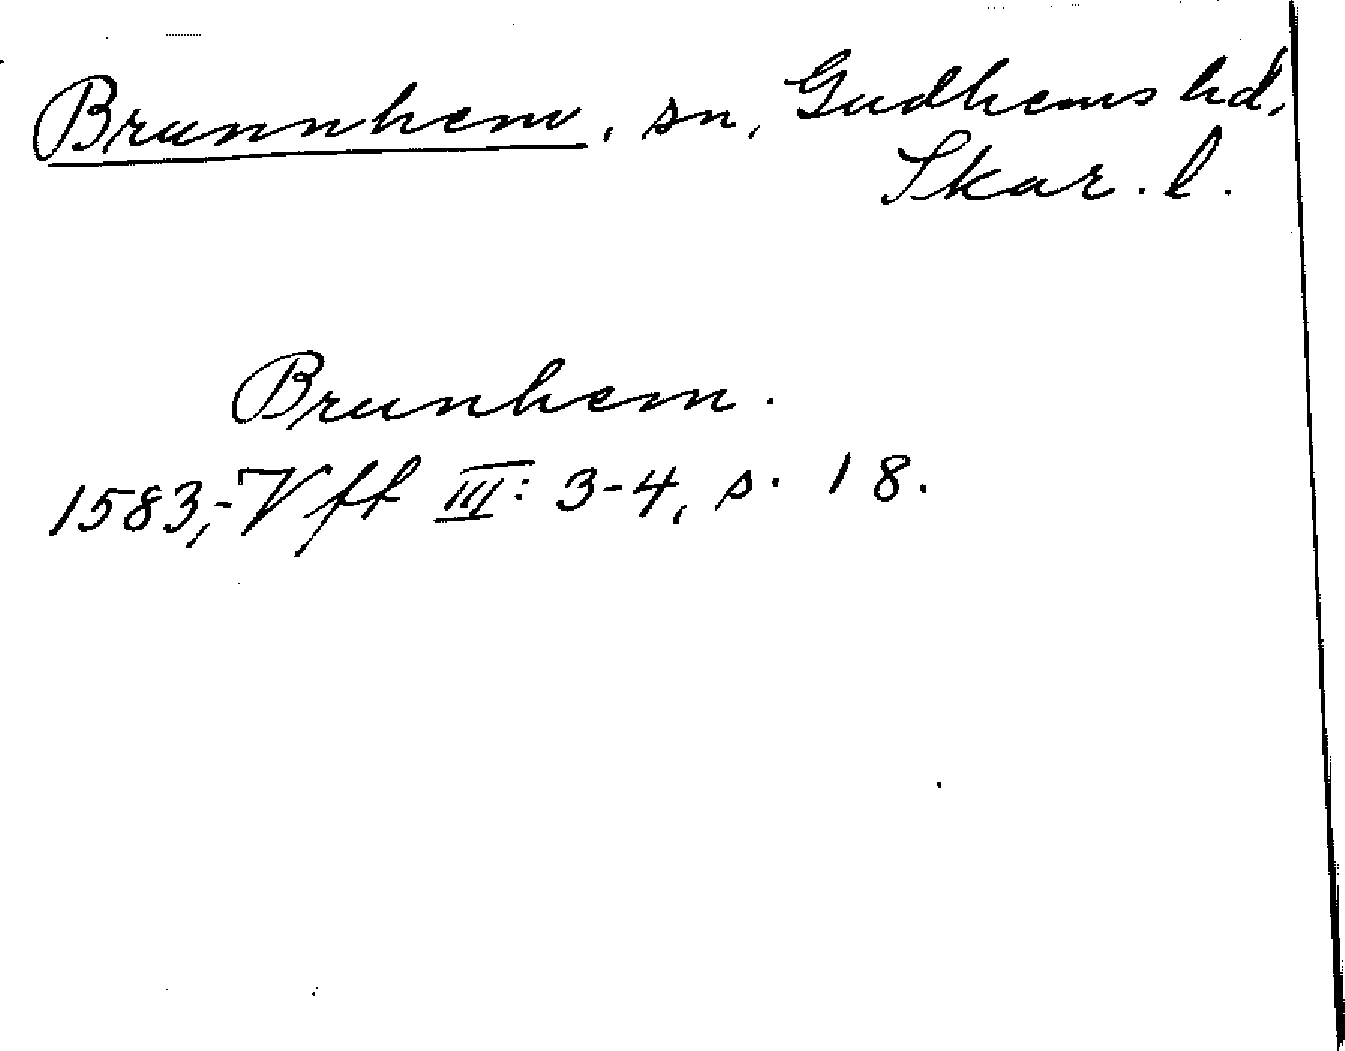 Brunnhem, sn, Gudhems hd,
Skar. l.
Brunhem.
1583,-Vft III: 3-4, s. 18.